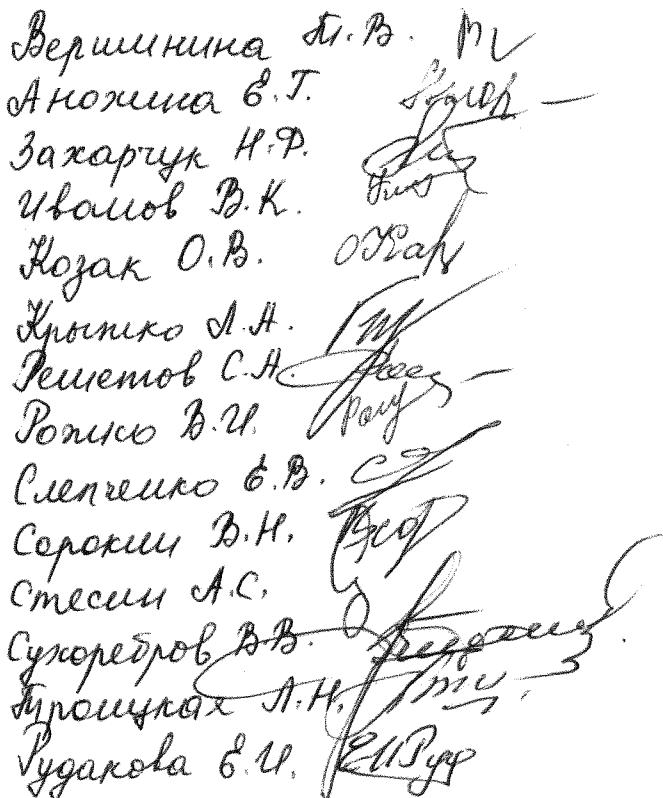 Вершинина Т.В.
Анохина Е.Г.
Захарчук Н.Ф.
Иванов В.К.
Козак О.В.
Крыжко Л.А.
Решетов С.А.
Рожко В.И.
Слепченко Е.В.
Сорокин В.Н.
Стесин А.С.
Сухоребров В.В.
Троицкая Л.Н.
Рудакова Е.И.